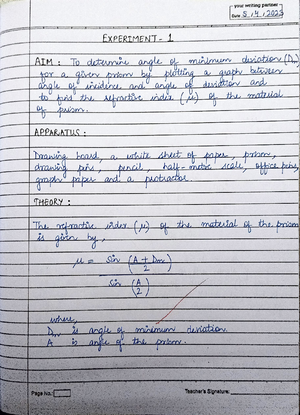 your writing partner
Date 5.4.2023
EXPERIMENT - 1
AIM : To determine angle of minimum deviation (Dm)
for a given prism by plotting a graph between
angle of incidence and angle of deviation and
to find the refractive index (μ) of the material
of prism.
APPARATUS :
Drawing board, a white sheet of paper, prism,
drawing pins, pencil, half-metre scale, office pins,
graph paper and a protractor.
THEORY :
The refractive index (μ) of the material of the prism
is given by,
μ = sin (A + Dm / 2)
sin (A / 2)
where,
Dm is angle of minimum deviation.
A is angle of the prism.
Page No.
Teacher's Signature: